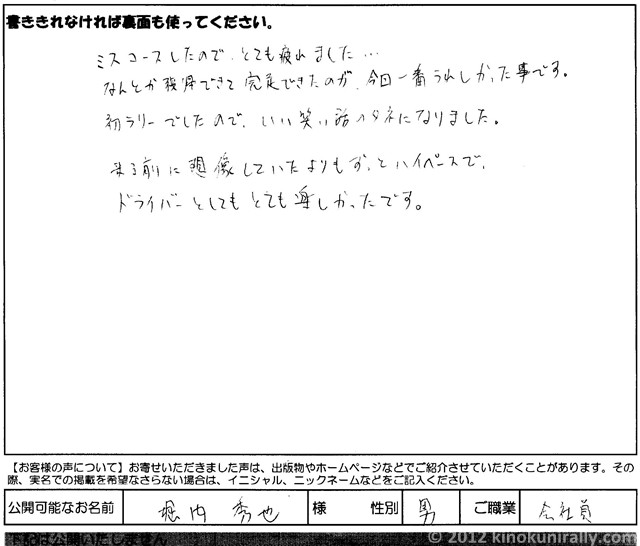 書ききれなければ裏面も使ってください。
ミスコースしたので、とても疲れました…
なんとか復帰できて完走できたのが、今回一番うれしかった事です。
初ラリーでしたので、いい笑い話のタネになりました。
来る前に想像していたよりもずっとハイペースで、
ドライバーとしてもとても楽しかったです。
【お客様の声について】お寄せいただきました声は、出版物やホームページなどでご紹介させていただくことがあります。その
際、実名での掲載を希望なさらない場合は、イニシャル、ニックネームなどをご記入ください。
公開可能なお名前 堀内 秀也 様 性別 男 ご職業 会社員
下記は公開いたしません
© 2012 kinokunirally.com